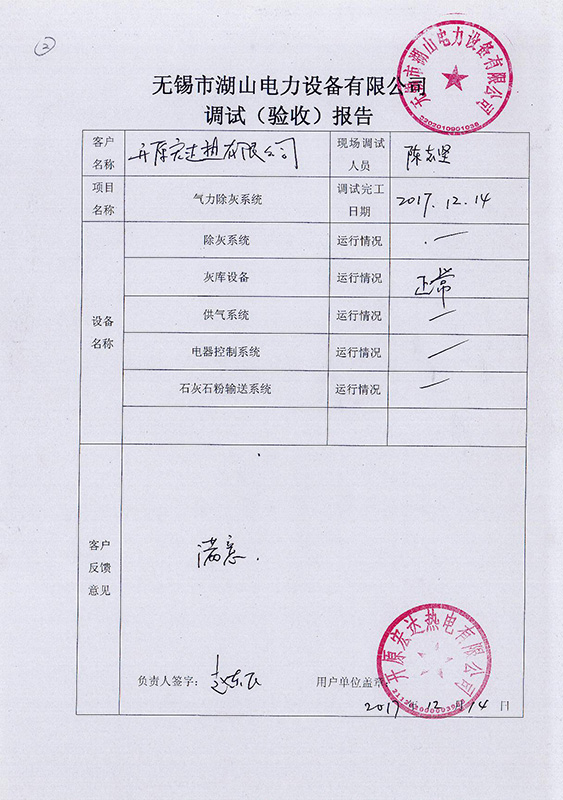 ②
无锡市湖山电力设备有限公司
2202010901038
无锡市湖山电力设备有限公司
调试（验收）报告
客户名称 开原宏达热有限公司 现场调试人员
项目名称 气力除灰系统 调试完工日期 2017.12.14
设备名称
除灰系统 运行情况 —
灰库设备 运行情况 正常
供气系统 运行情况 —
电器控制系统 运行情况 —
石灰石粉输送系统 运行情况 —
客户反馈意见
满意.
开原宏达热电有限公司
负责人签字： 用户单位盖章：
2017年12月14日